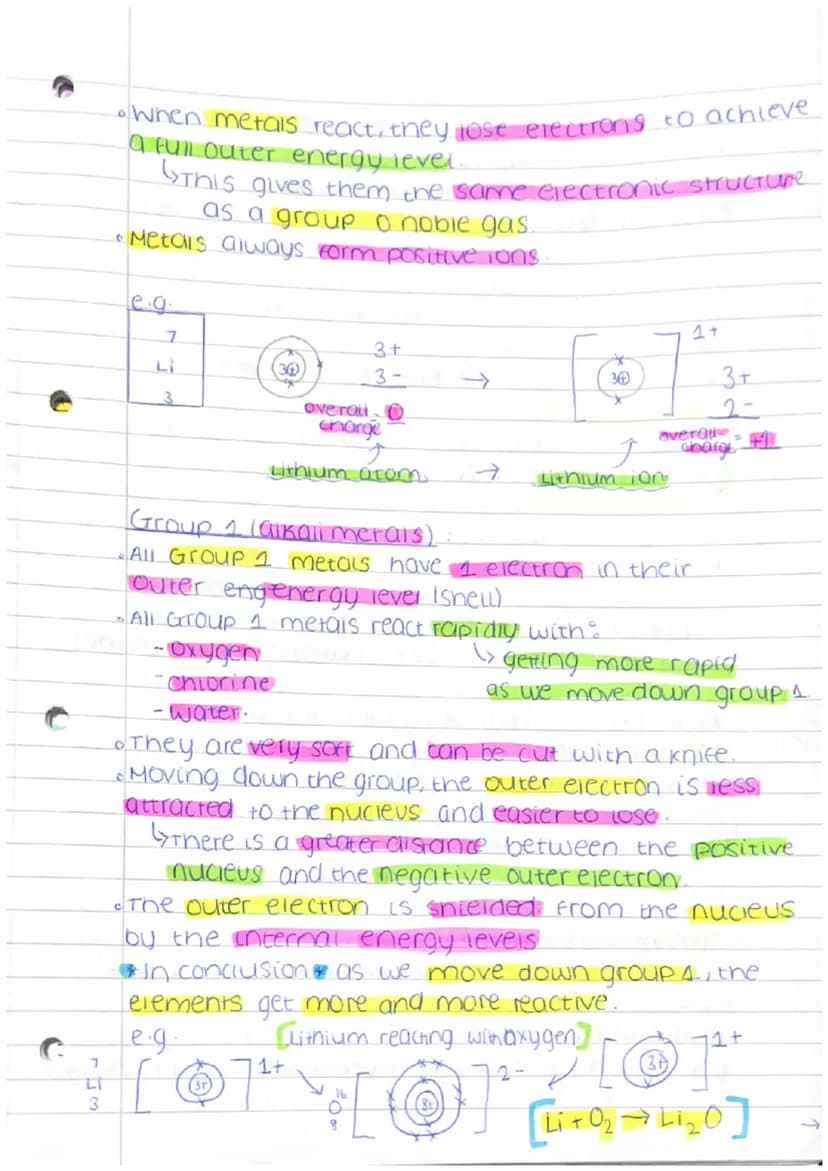 ◦ When metals react, they lose electrons to achieve
a full outer energy level.
↳ This gives them the same electronic structure
as a group 0 noble gas.
◦ Metals always form positive ions.
e.g.
7
Li
3
3+
3+
3-
overall charge = 0
→
3+
1+
3+
2-
overall charge = +1
Lithium atom → Lithium ion
Group 1 (alkali metals) :
◦ All Group 1 metals have 1 electron in their
outer engenergy level (shell)
◦ All Group 1 metals react rapidly with:
- oxygen
↳ getting more rapid
- chlorine
as we move down group 1
- water.
◦ They are very soft and can be cut with a knife.
◦ Moving down the group, the outer electron is less
attracted to the nucleus and easier to lose.
↳ There is a greater distance between the positive
nucleus and the negative outer electron.
◦ The outer electron is shielded from the nucleus
by the internal energy levels
* In conclusion * as we move down group 1, the
elements get more and more reactive.
e.g. [Lithium reacting with oxygen.]
7
Li
3
3+
1+
16
O
8
8+
2-
3+
1+
[Li + O₂ → Li₂O]
→